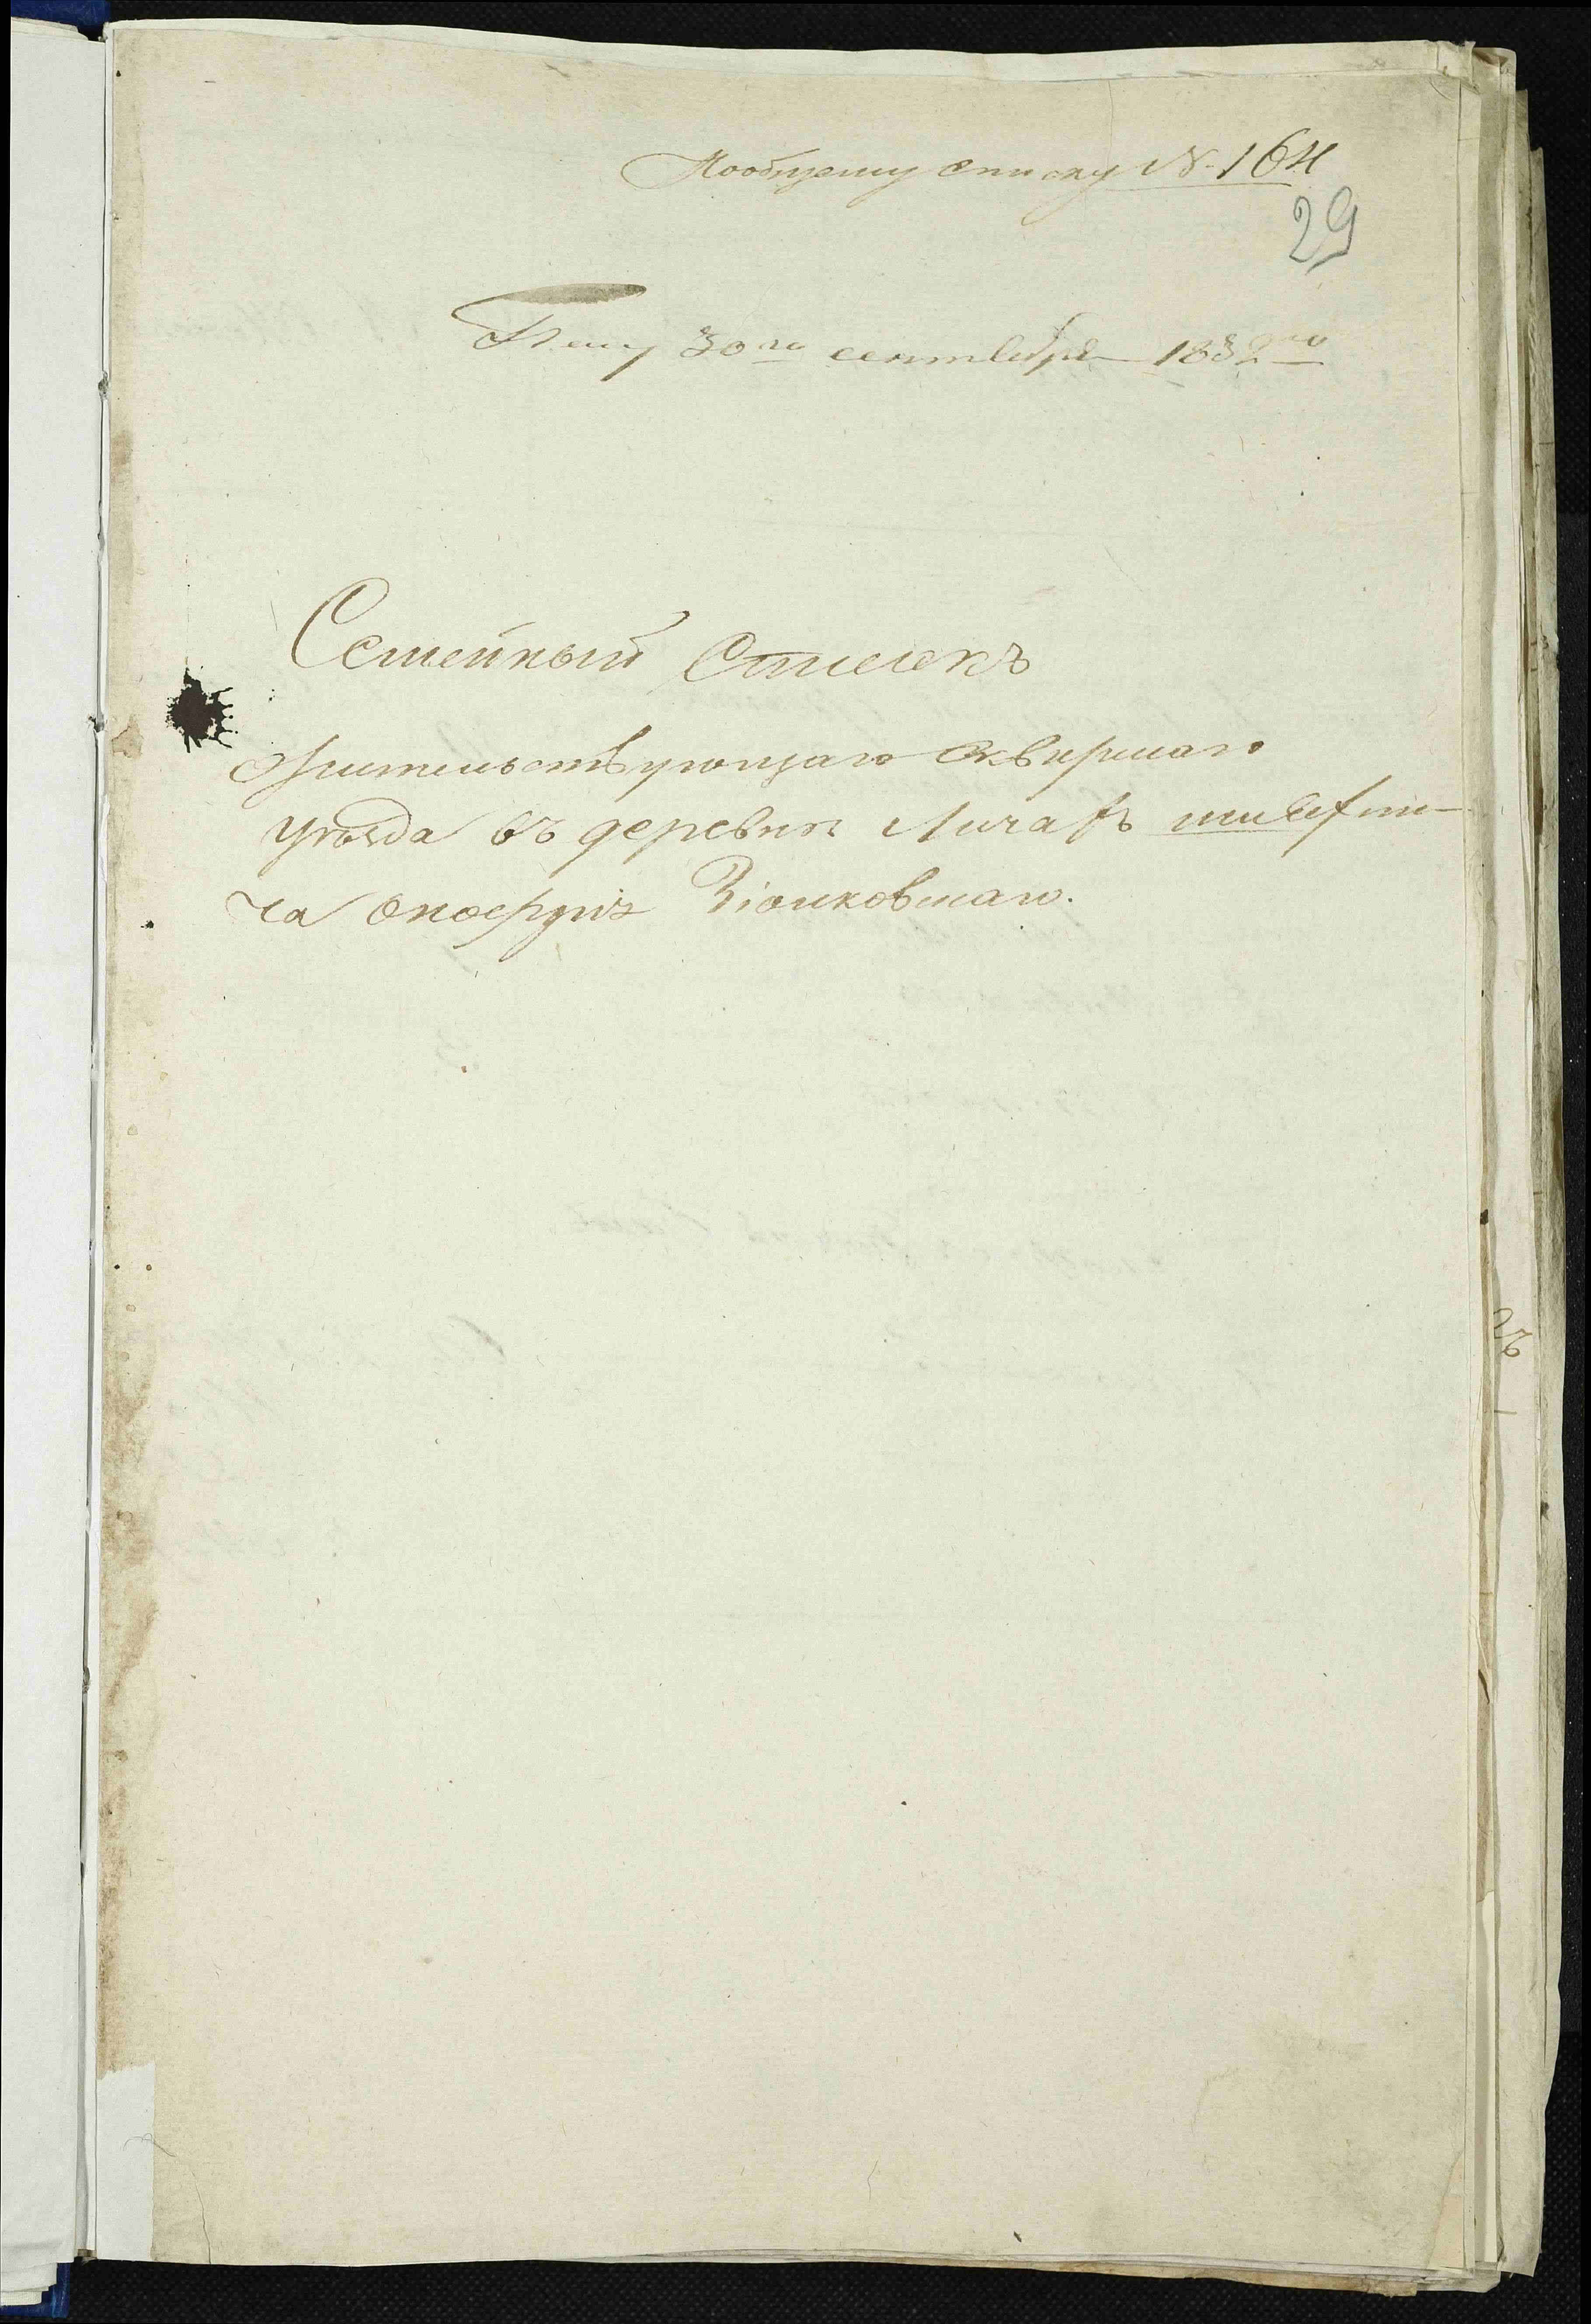 Пообщему списку №. 164
29
30го сентября 1832го
Семейный Списокъ
Жительствующаго Сквирскаго
уѣзда въ деревни Личахъ шляхти-
ча Онофрія Зіомковскаго.